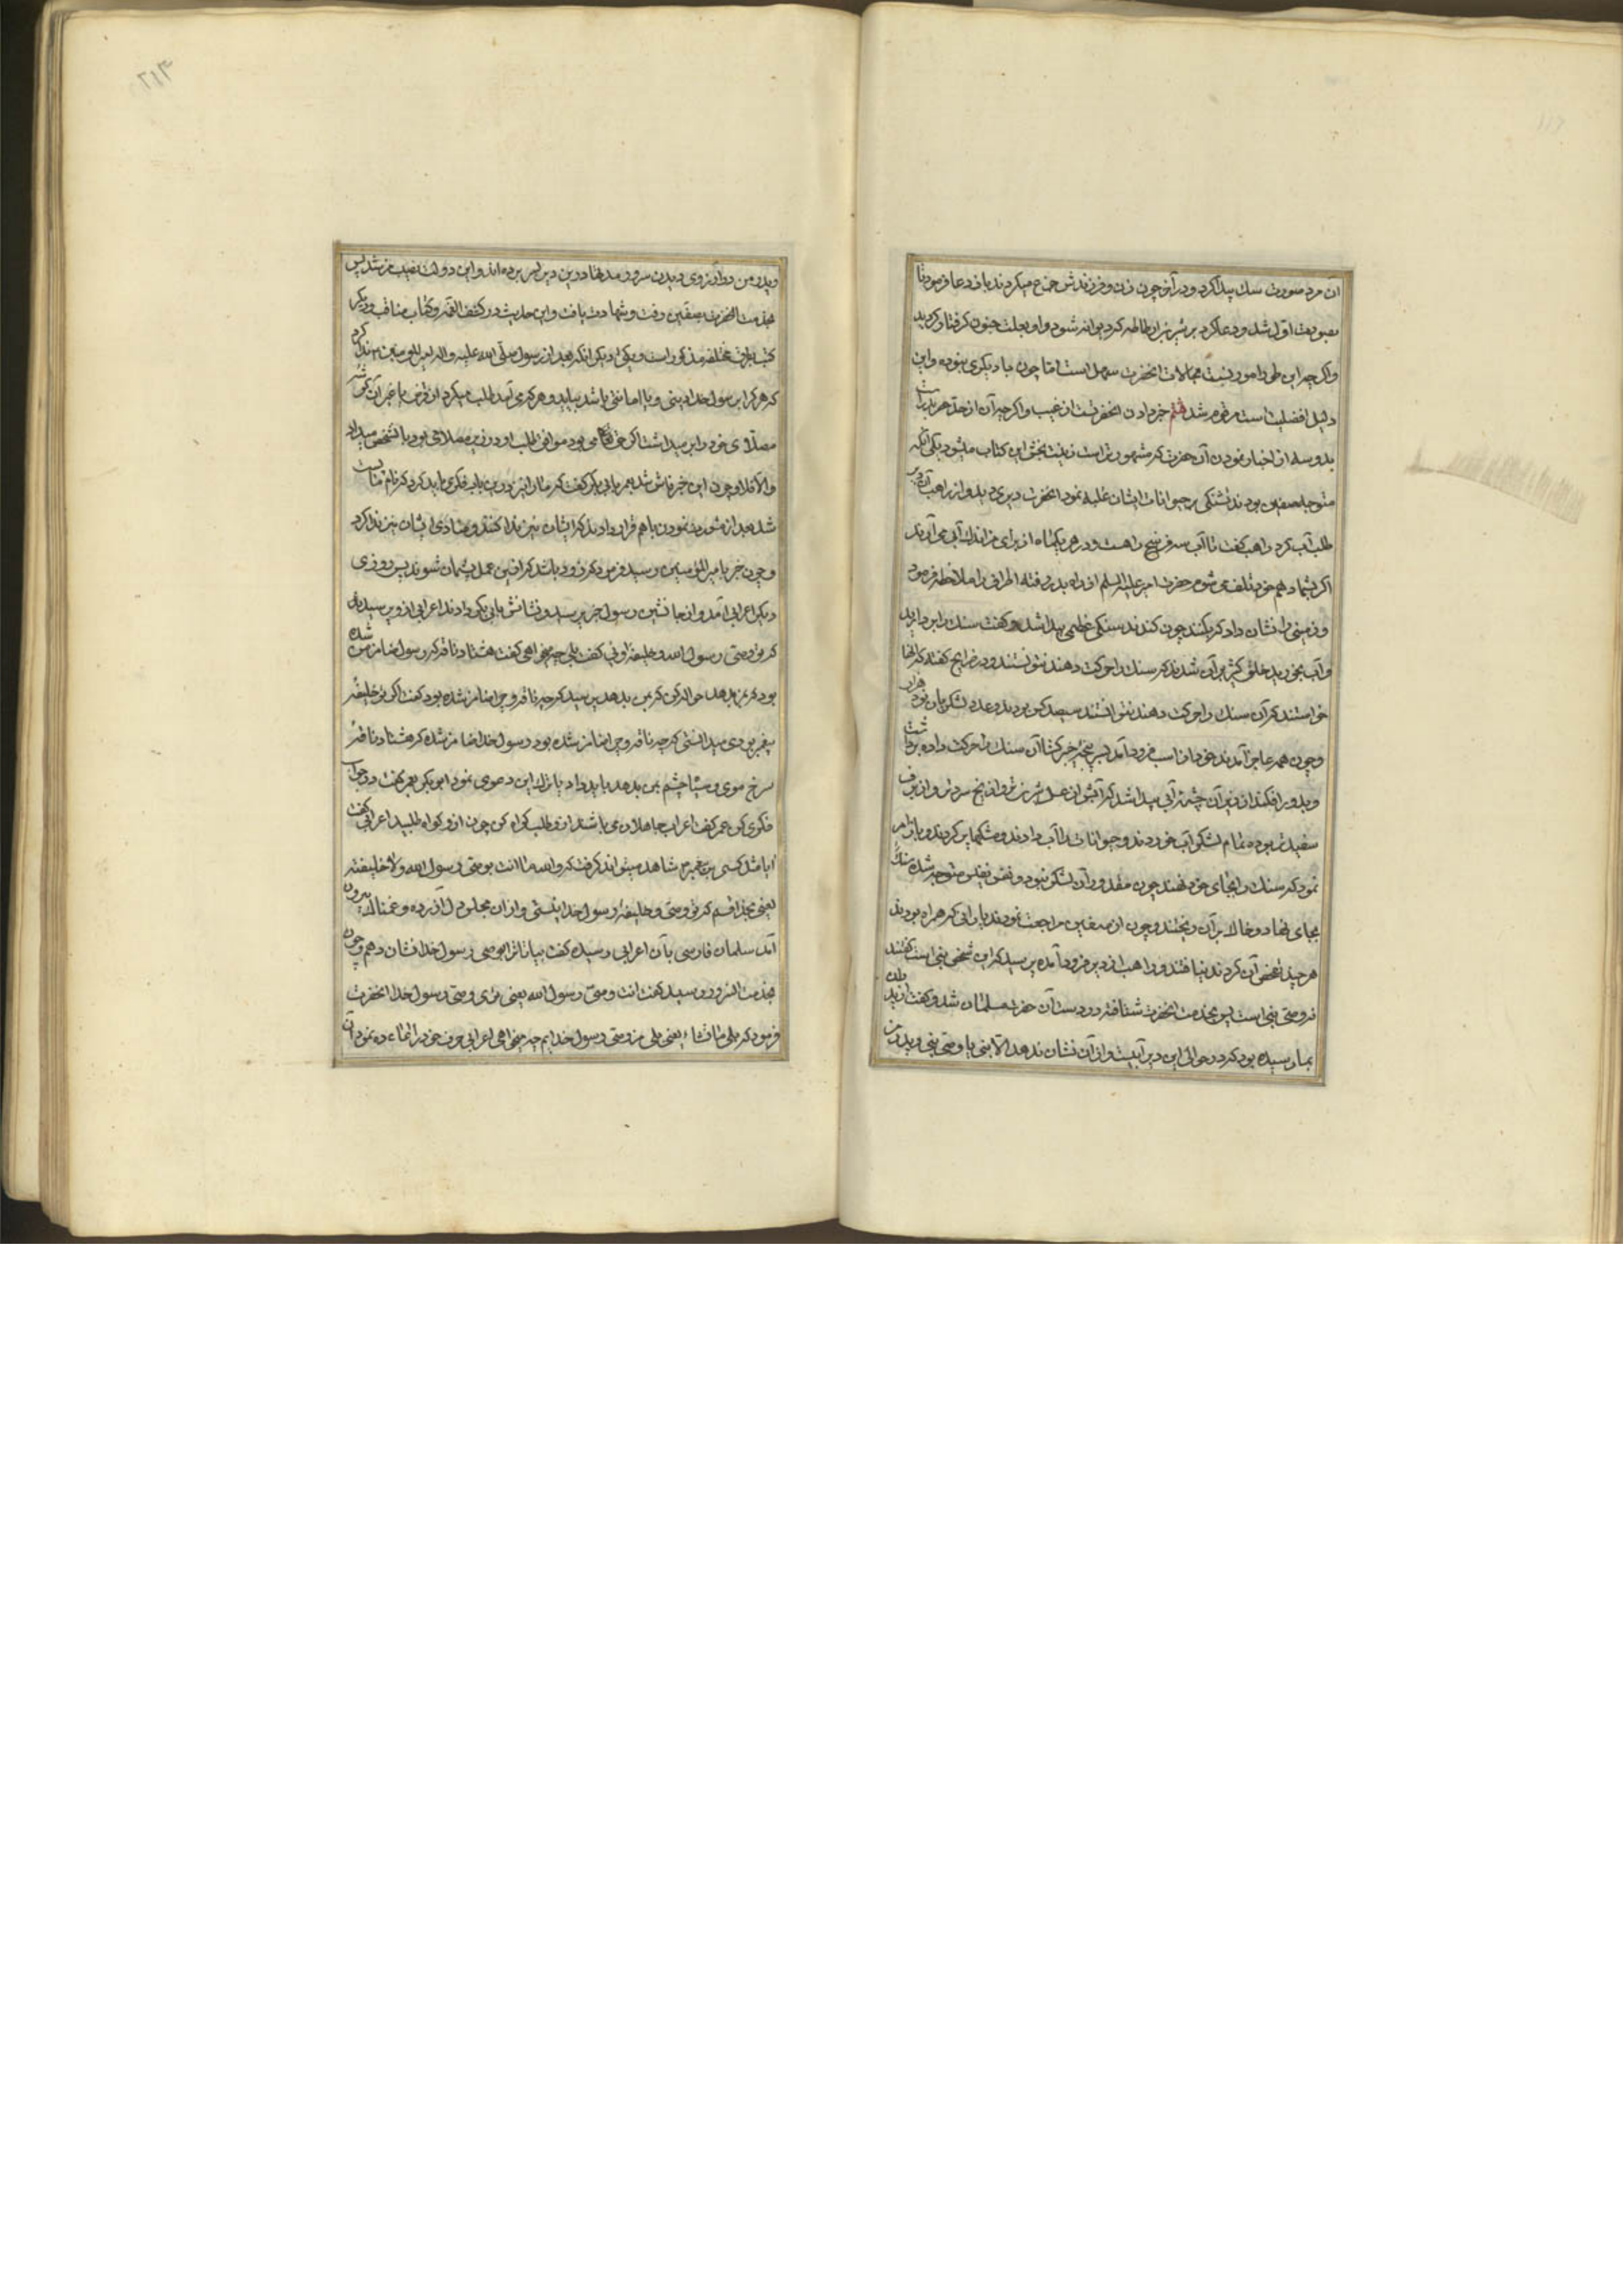 آن مرد صورت سك پیدا كرد و در آخر چون زن و فرزندش جزع میكردند باز دعا فرمود تا
بصورت اول شد و دعا كرد بر بسر بن ارطاطه كه دیوانه شود و او بعلت جنون كرفتار كردید
و اكرچه این طی را امور نسبت بحالات انحضرت سهل است اما چون با دیكری نبوده و این
دلیل افضلیت است مرقوم شد هشتم خبر دادن انحضرتست از غیب و اكرچه آن از حد
بدو سه از اخبار نمودن آن حضرت كه مشهورتر است زینت بخش این كتاب میشود یكی آنكه
متوجه صفین بودند تشنكی بر حیوانات ایشان غلبه نمود انحضرت دیری دید و از راهب آن دیر
طلب آب كرد راهب كفت تا آب سه فرسخ راهست و در هر یكماه از برای من اندك آبی می آورند
اكر بشما دهم خود تلف می شوم حضرت امیر علیه السلم از راه بدر رفته اطراف را ملاحظه فرمود
و زمینی را نشان داد كه بكنند چون كندند سنكی عظیمی پیدا شد و كفت سنك را بردارید
و آب بخورید خلق كثیر بر آن شدند كه سنك را حركت دهند نتوانستند و در خرایج كفته كه انها
خواستند كه آن سنك را حركت دهند نتوانستند سیصد كس بودند و عدد لشكریان نود هزار
و چون همه عاجز آمدند خود از اسب فرود آمد بسر پنجه خیبركشا آن سنك را حركت داده برداشت
و بدور افكند از زیر آن چشمه آبی پیدا شد كه آبش از عسل شیرین تر و از یخ سردتر و از برف
سفیدتر بوده تمام لشكر آب خوردند و حیوانات را آب دادند و مشكها پر كردند و باز امر
نمود كه سنك را بجای خود نهند چون مقدور آن لشكر نبود و نفس نفیس متوجه شده سنك
بجای نهاد و خاك بر آن ریختند و چون از صفین مراجعت نمودند یارانی كه همراه بودند
هرچند تفحص آن كردند نیافتند و راهب از دیر فرود آمده پرسید كه این شخص نبی است كفتند
نه وصی نبی است پس بخدمت انحضرت شتافته در دست آن حضرت مسلمان شد و كفت از پدران
بما رسیده بود كه در حوالی این دیر آبیست و از آن نشان ندهد الا نبی یا وصی نبی و پدر من
و پدر من در آرزوی دیدن سرور مدتها در این دیر بسر برده اند و این دولت نصیب من شد پس
بخدمت انحضرت بصفین رفت و شهادت یافت و این حدیث در كشف الغمه و كتاب مناقب و دیكر
كتب بطرق مختلفه مذكور است دیكر انكه بعد از رسول صلی الله علیه و اله امیرالمومنین ندا كرد
كه هر كرا بر رسول خدا دینی و یا امانتی باشد بیاید و هر كه می آمد طلب میكرد
مصلای خود را بر میداشت موافق طلب او در زیر مصلا می بود بانشخص میداد
و الا فلا و چون این خبر فاش شد عمر بابی بكر كفت كه ما را نیز در این باب فكری باید كرد كه نام ما پست
شد بعد از مشورت نمودن با هم قرار دادند كه ایشان نیز ندا كنند و منادی ایشان نیز ندا كرد
و چون خبر بامیرالمومنین رسید فرمود كه زود باشد كه از این عمل پشیمان شوند پس روزی
دیكر اعرابی آمد و از جانشین رسول خبر پرسید و نشانش بابی بكر دادند اعرابی از او پرسید
كه تو وصی رسول الله و خلیفه اوئی كفت بلی چه میخواهی كفت هشتاد ناقه كه رسول ضامن شده
بود كه بمن بدهد حواله كن كه بمن بدهد پرسید كه چه ناقه و چرا ضامن شده بود كفت اكر تو خلیفه
پیغمبر بودی میدانستی كه چه ناقه و چرا ضامن شده بود رسول خدا ضامن شده كه هشتاد ناقه
سرخ موی و سیاه چشم بمن بدهد باید داد یا ترك این دعوی نمود ابوبكر بعمر كفت در جواب
فكری كن عمر كفت اعراب جاهلان می باشند از او طلب كواه كن چون از او كواه طلبید اعرابی كفت
آیا مثل كسی بر پیغمبر شاهد میتواند كرفت كه والله ما انت بوصی رسول الله ولا خلیفته
یعنی بخدا قسم كه تو وصی و خلیفه رسول خدا نیستی و از ان مجلس دل آزرده و غمناك بیرون
آمد سلمان فارسی بآن اعرابی رسیده كفت بیا تا ترا بوصی رسول خدا نشان دهم و چون
بخدمت السرور رسید كفت انت وصی رسول الله یعنی توئی وصی رسول خدا انحضرت
فرمود كه بلی ما تشاء یعنی بلی من وصی رسول خدایم چه میخواهی اعرابی